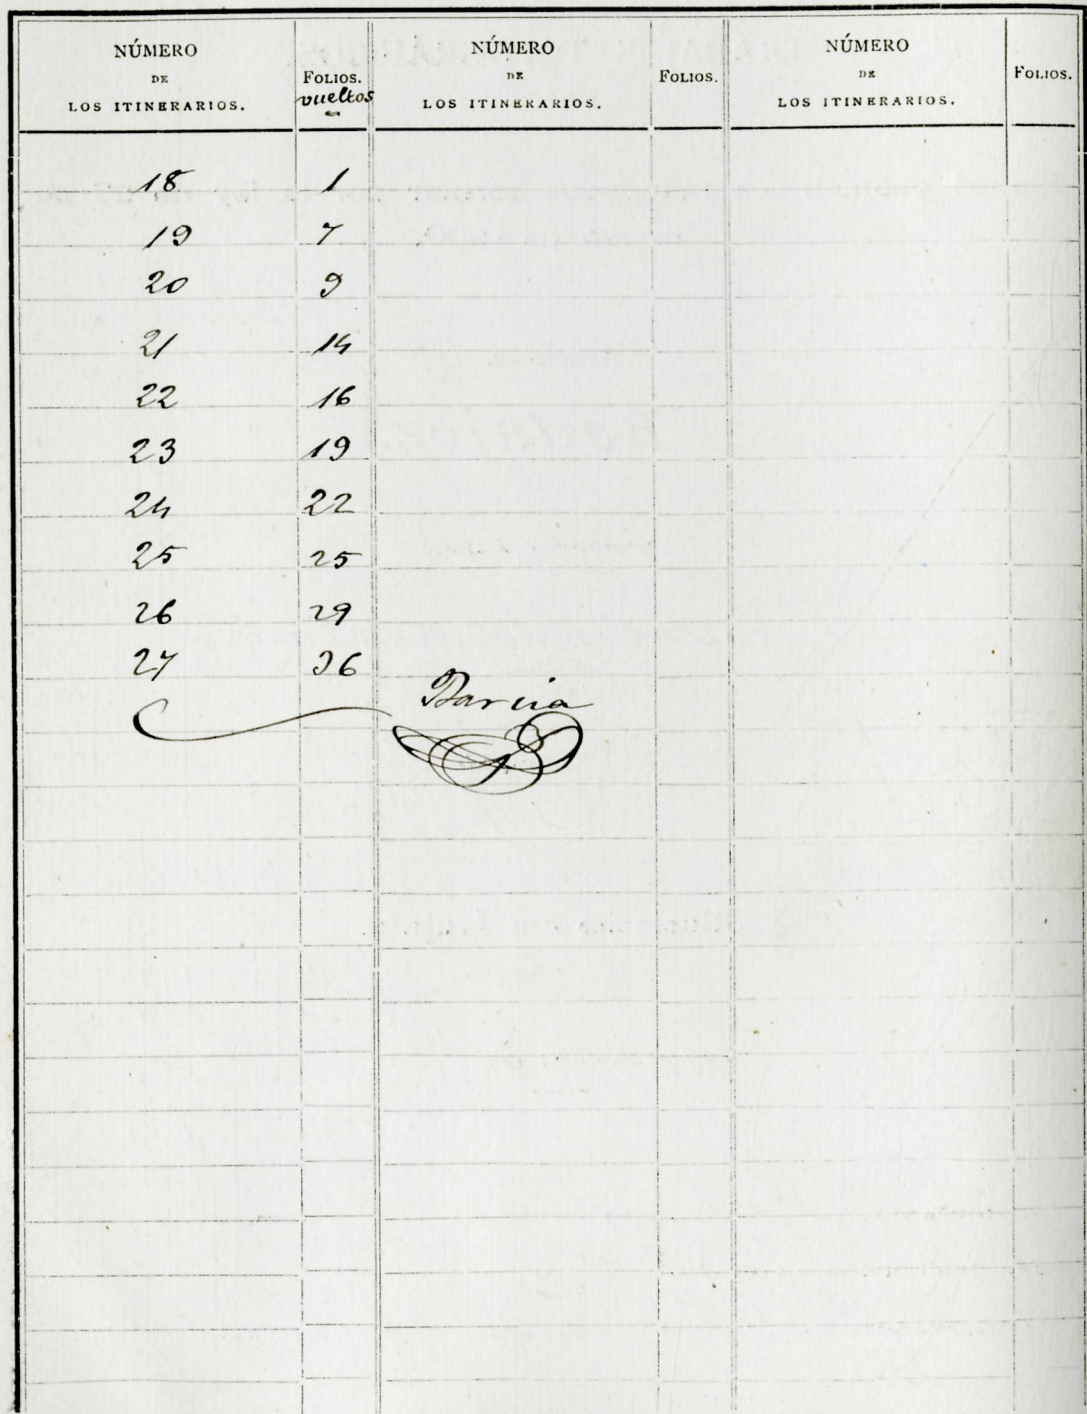 NÚMERO DE LOS ITINERARIOS. FOLIOS. vueltos NÚMERO DE LOS ITINERARIOS. FOLIOS. NÚMERO DE LOS ITINERARIOS. FOLIOS.
18 1
19 7
20 9
21 14
22 16
23 19
24 22
25 25
26 29
27 36
Barcia